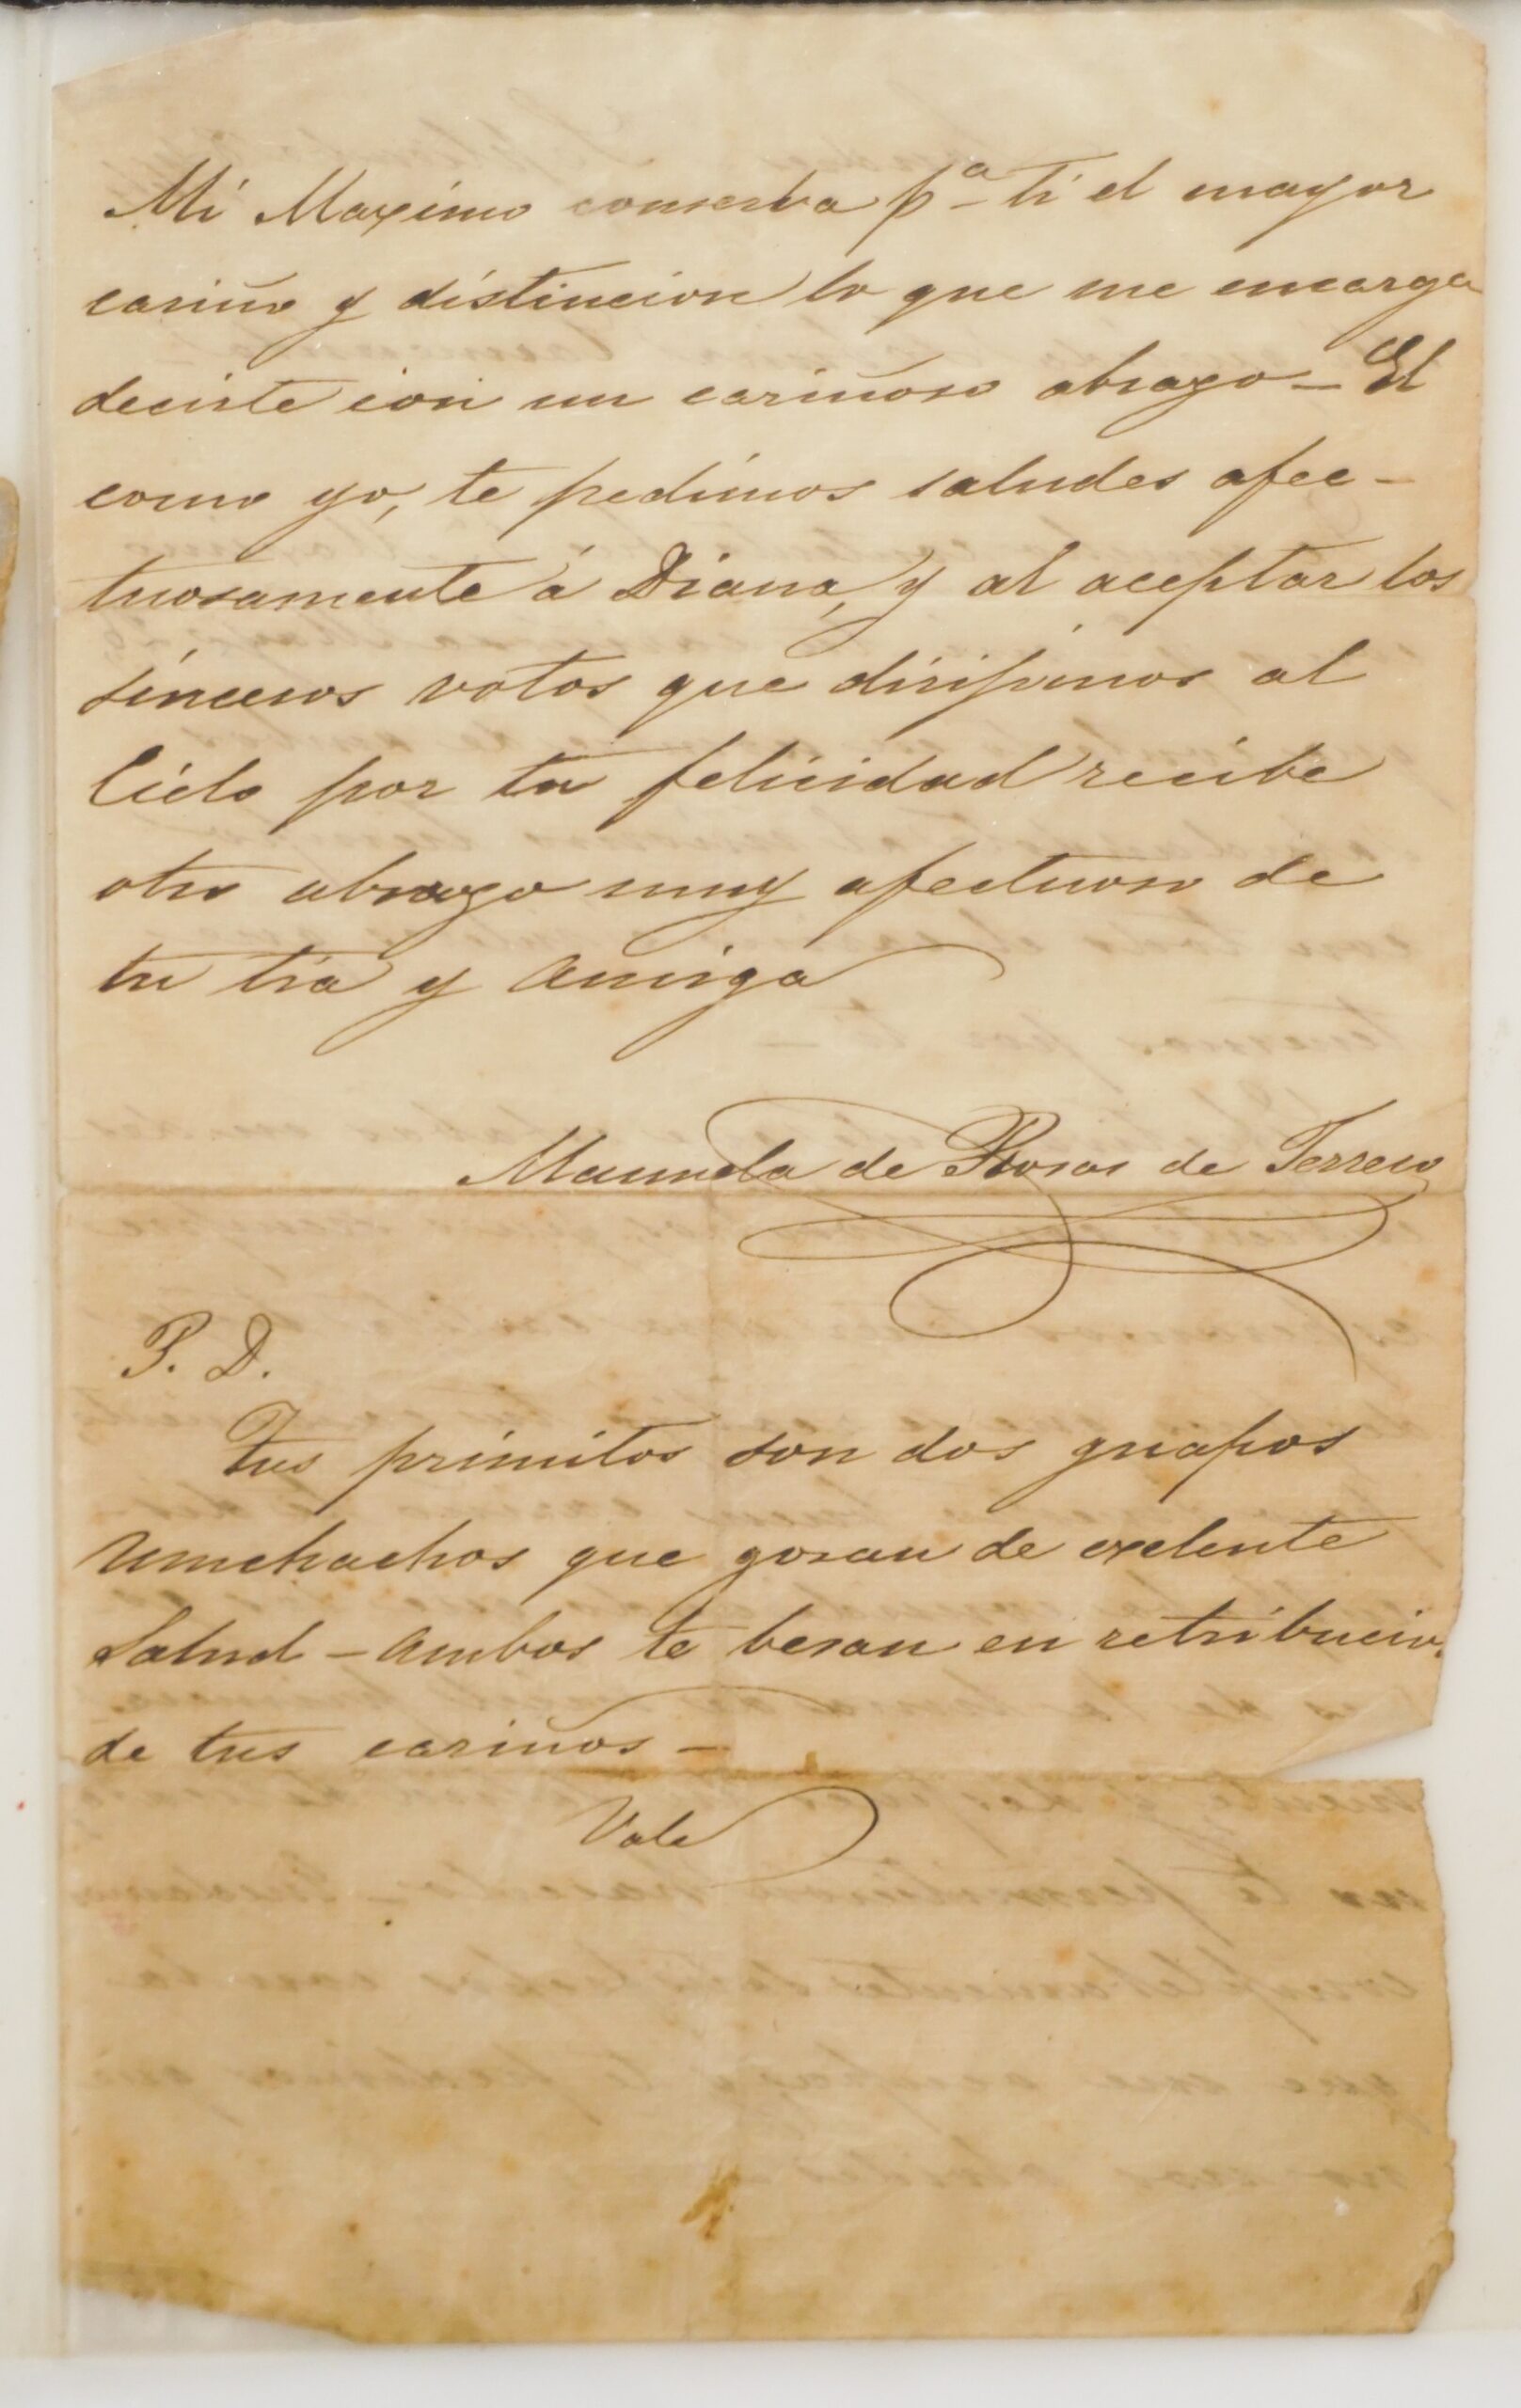 Mi Maximo conserba pª ti el mayor
cariño y distincion lo que me encarga
decirte con un cariñoso abrazo - El
como yo, te pedimos saludes afec-
tuosamente á Diana, y al aceptar los
sinceros votos que dirijimos al
Cielo por tu felicidad recibe
otro abrazo muy afectuoso de
tu tia y amiga
Manuela de Rosas de Terrero
P. D.
Tus primitos son dos guapos
muchachos que gosan de exelente
salud - Ambos te besan en retribucion
de tus cariños -
Vale